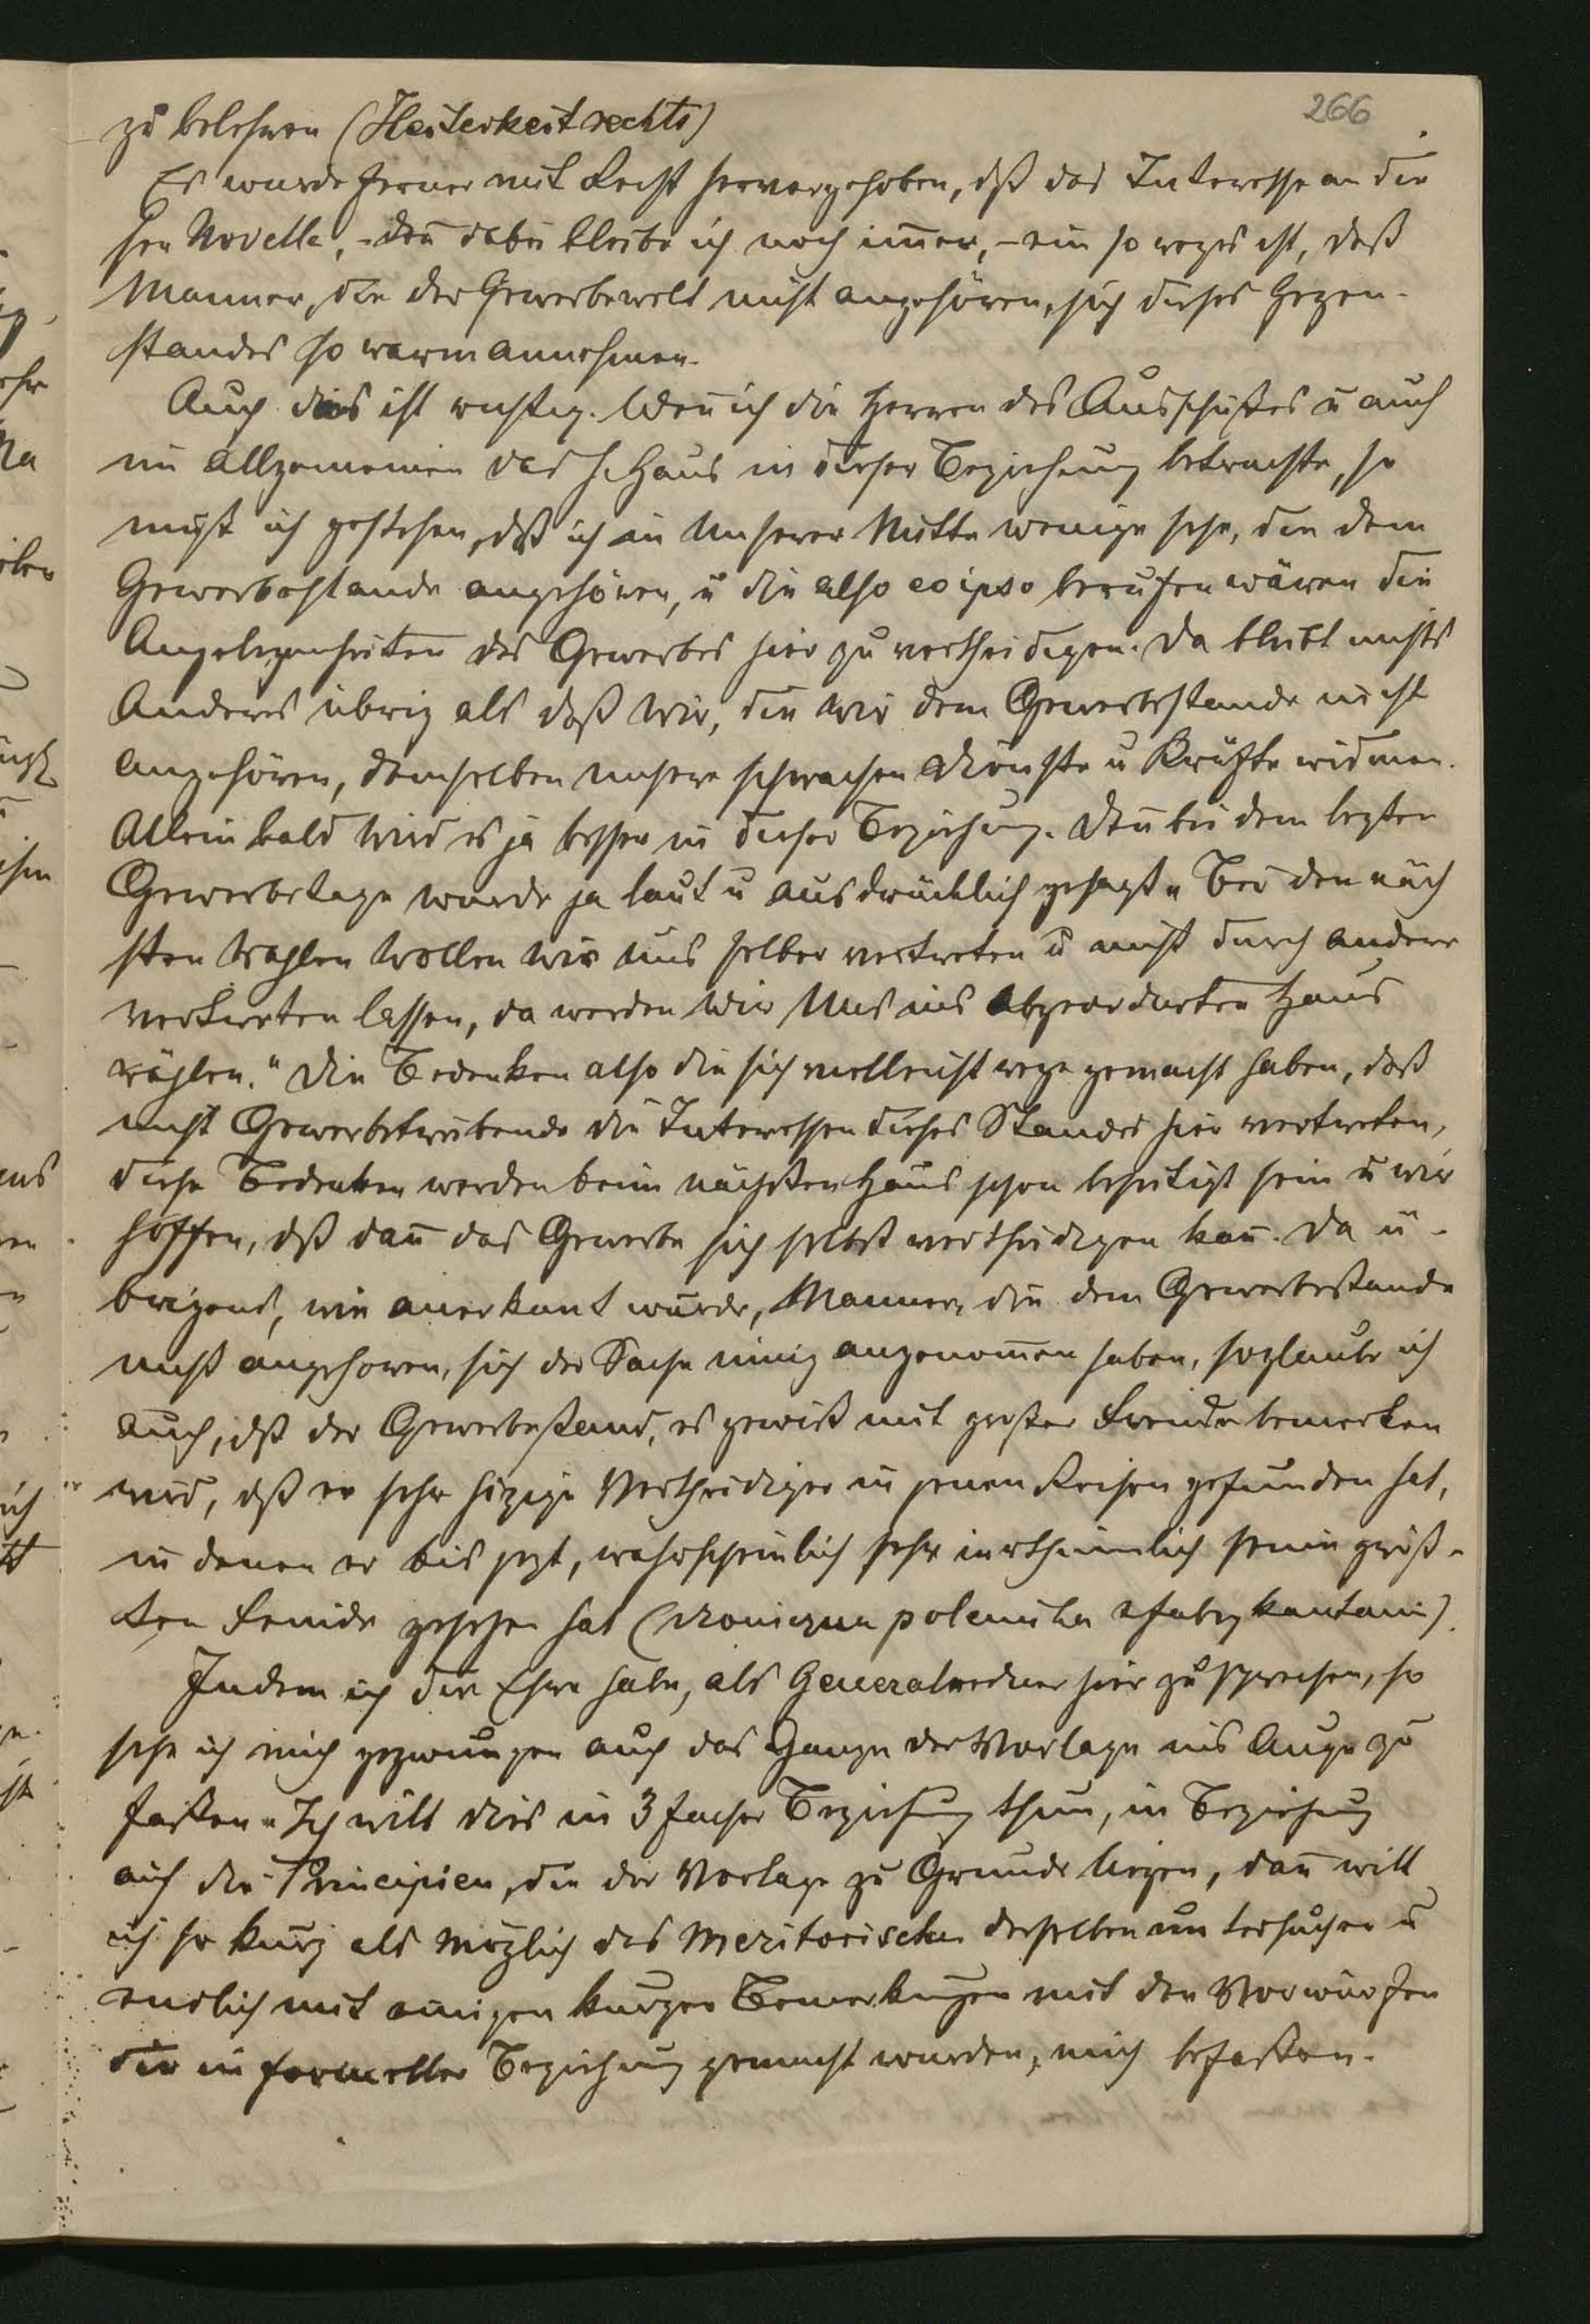 266
zu belehren (Heiterkeit rechts)
Es wurde ferner mit Recht hervorgehoben, dß das Interesse an die
sen Novelle, - den dabei bleibe ich noch imer, - ein so reges ist, daß
Manner, die der Gewerbewelt nicht angehören, sich dieses Gegen-
standes so warm annehmen.
Auch dies ist richtig. Wen ich die Herren des Ausschußes u auch
im Allgemeinen das h. Haus in dieser Beziehung betrachte, so
muß ich gestehen, dß ich in Unserer Mitte wenige sehe, die dem
Gewerbestande angehören, u die also eo ipso berufen wären die
Angelegenheiten des Gewerbes hier zu vertheidigen. Da bleibt nichts
Anderes übrig als daß wir, die wir dem Gewerbestande nicht
angehören, demselben unsere schwachen Dienste u Kräfte widmen.
Allein bald wird es ja besser in dieser Beziehung. Den bei dem lezten
Gewerbetage wurde ja laut u ausdrücklich gesagt „Bei den näch
sten Wahlen wollen wir uns selber vertreten u nicht durch andere
vertreten lassen, da werden wir Uns ins Abgeordneten Haus
wählen." Die Bedenken also die sich vielleicht rege gemacht haben, daß
nicht Gewerbetreibende die Interessen dieses Standes hier vertreten,
diese Bedenken werden beim nächsten Haus schon beseitigt sein u wir
hoffen, dß dan das Gewerbe sich selbst vertheidigen kan. Da ü-
brigens, wie anerkant wurde, Manner, die dem Gewerbestande
nicht angehoren, sich der Sache innig angenomen haben, so glaube ich
auch, dß der Gewerbestand, es gewiß mit großer Freude bemerken
wird, dß er sehr hizige Vertheidiger in jenen Kreisen gefunden hat,
in denen er bis jezt, wahrscheinlich sehr irrthümlich seine größ-
ten Feinde gesehen hat (ironiczna polemika z fabrykantami).
Indem ich die Ehre habe, als Generalredner hier zu sprechen, so
sehe ich mich gezwungen auch das Ganze der Vorlage ins Auge zu
faßen. Ich will dies in 3facher Beziehung thun, in Beziehung
auf die Principien, die der Vorlage zu Grunde liegen, dan will
ich so kurz als möglich das Meritorische derselben untersuchen u
endlich mit einigen kurzen Bemerkungen mit den Vorwürfen
die in formeller Beziehung gemacht wurden, mich befaßen.